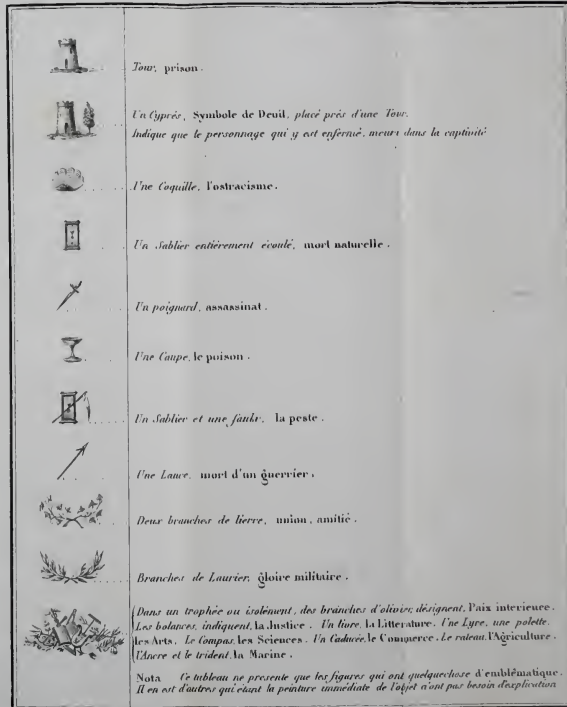 Tour, prison.
Un Cyprès, Symbole de Deuil, placé près d'une Tour.
Indique que le personnage qui y est enfermé, meurt dans la captivité
Une Coquille, l'ostracisme.
Un Sablier entièrement écoulé, mort naturelle.
Un poignard, assassinat.
Une Coupe, le poison.
Un Sablier et une faulx, la peste.
Une Lance, mort d'un guerrier.
Deux branches de lierre, union, amitié.
Branches de Laurier, gloire militaire.
Dans un trophée ou isolément, des branches d'olivier, désignent, Paix interieure.
Les balances, indiquent, la Justice. Un livre, la Litterature. Une Lyre, une palette,
les Arts. Le Compas, les Sciences. Un Caducée, le Commerce. Le rateau, l'Agriculture.
l'Ancre et le trident, la Marine.
Nota Ce tableau ne presente que les figures qui ont quelquechose d'emblématique.
Il en est d'autres qui étant la peinture immédiate de l'objet n'ont pas besoin d'explication